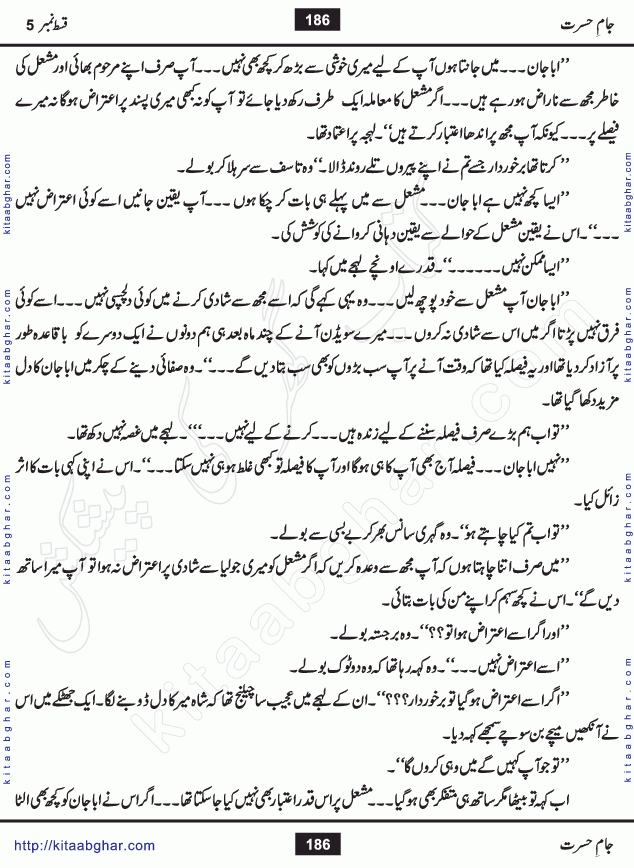 جامِ حسرت 186 قسط نمبر 5
’’ابا جان ۔۔۔ میں جانتا ہوں آپ کے لیے میری خوشی سے بڑھ کر کچھ بھی نہیں ۔۔۔ آپ صرف اپنے مرحوم بھائی اور مشعل کی
خاطر مجھ سے ناراض ہو رہے ہیں ۔۔۔ اگر مشعل کا معاملہ ایک طرف رکھ دیا جائے تو آپ کو نہ کبھی میری پسند پر اعتراض ہوگا نہ میرے
فیصلے پر ۔۔۔ کیونکہ آپ مجھ پر اندھا اعتبار کرتے ہیں‘‘۔ لہجہ پر اعتماد تھا۔
’’کرتا تھا برخوردار جسے تم نے اپنے پیروں تلے روند ڈالا۔‘‘ وہ تاسف سے سر ہلا کر بولے۔
’’ایسا کچھ نہیں ہے ابا جان ۔۔۔ مشعل سے میں پہلے ہی بات کر چکا ہوں ۔۔۔ آپ یقین جانیں اسے کوئی اعتراض نہیں
۔۔۔‘‘۔ اس نے یقین مشعل کے حوالے سے یقین دہانی کروانے کی کوشش کی۔
’’ایسا ممکن نہیں ۔۔۔۔۔۔‘‘۔ قدرے اونچے لہجے میں کہا۔
’’ابا جان آپ مشعل سے خود پوچھ لیں ۔۔۔ وہ یہی کہے گی کہ اسے مجھ سے شادی کرنے میں کوئی دلچسپی نہیں ۔۔۔ اسے کوئی
فرق نہیں پڑتا اگر میں اس سے شادی نہ کروں ۔۔۔ میرے سویڈن آنے کے چند ماہ بعد ہی ہم دونوں نے ایک دوسرے کو باقاعدہ طور
پر آزاد کر دیا تھا اور یہ فیصلہ کیا تھا کہ وقت آنے پر آپ سب بڑوں کو بھی سب بتا دیں گے ۔۔۔‘‘۔ وہ صفائی دینے کے چکر میں ابا جان کا دل
مزید دکھا گیا تھا۔
’’تو اب ہم بڑے صرف فیصلہ سننے کے لیے زندہ ہیں ۔۔۔ کرنے کے لیے نہیں ۔۔۔‘‘‘۔ لہجے میں غصہ نہیں دکھ تھا۔
’’نہیں ابا جان ۔۔۔ فیصلہ آج بھی آپ کا ہی ہوگا اور آپ کا فیصلہ تو کبھی غلط ہو ہی نہیں سکتا ۔۔۔‘‘۔ اس نے اپنی کہی بات کا اثر
زائل کیا۔
’’تو اب تم کیا چاہتے ہو‘‘۔ وہ گہری سانس بھر کر بے بسی سے بولے۔
’’میں صرف اتنا چاہتا ہوں کہ آپ مجھ سے وعدہ کریں کہ اگر مشعل کو میری جولیا سے شادی پر اعتراض نہ ہوا تو آپ میرا ساتھ
دیں گے‘‘۔ اس نے کچھ سہم کر اپنے من کی بات بتائی۔
’’اور اگر اسے اعتراض ہوا تو؟؟‘‘۔ وہ برجستہ بولے۔
’’اسے اعتراض نہیں ۔۔۔‘‘۔ وہ کہہ رہا تھا کہ وہ دو ٹوک بولے۔
’’اگر اسے اعتراض ہو گیا تو برخوردار؟؟؟‘‘۔ ان کے لہجے میں عجیب سا چیلنج تھا کہ شاہ میر کا دل ڈوبنے لگا۔ ایک جھٹکے میں اس
نے آنکھیں میچے بن سوچے سمجھے کہہ دیا۔
’’تو جو آپ کہیں گے میں وہی کروں گا‘‘۔
اب کہہ تو بیٹھا مگر ساتھ ہی متفکر بھی ہو گیا ۔۔۔ مشعل پر اس قدر اعتبار بھی نہیں کیا جا سکتا تھا ۔۔۔ اگر اس نے ابا جان کو کچھ بھی الٹا
kitaabghar.com
kitaabghar.com
kitaabghar.com
kitaabghar.com
kitaabghar.com
kitaabghar.com
kitaabghar.com
kitaabghar.com
کتاب گھر کی پیشکش
kitaabghar.com
جامِ حسرت 186 http://kitaabghar.com